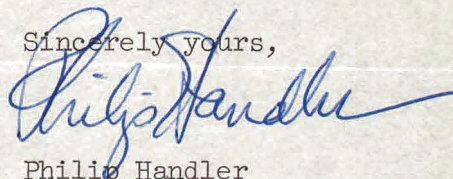 Sincerely yours,
Philip Handler
Philip Handler